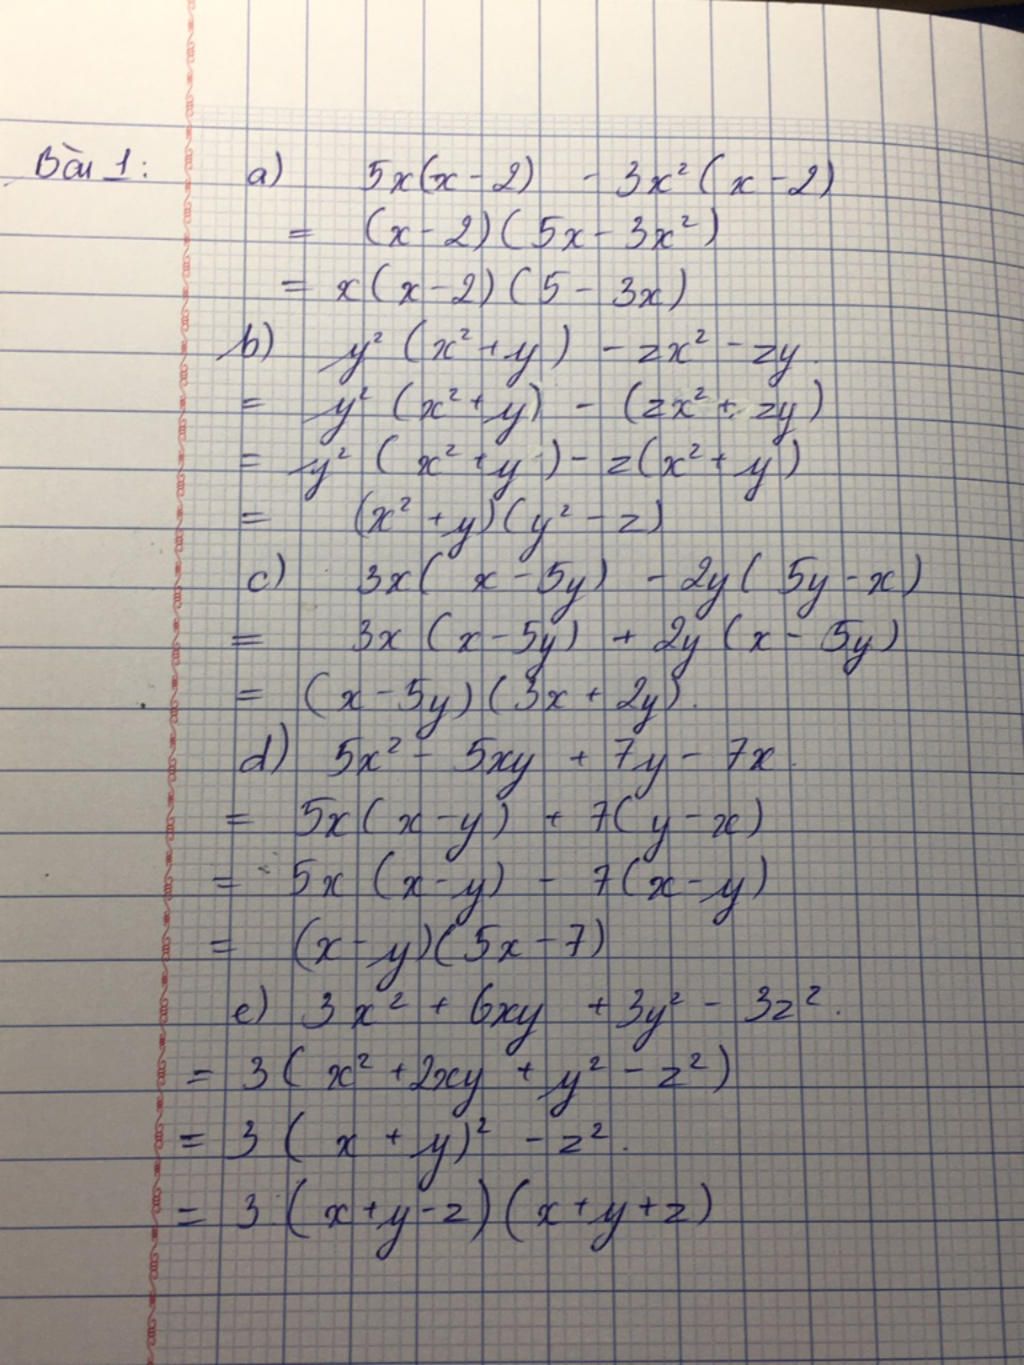 Bài 1: a) 5x(x - 2) - 3x² (x - 2)
= (x - 2) (5x - 3x²)
= x(x - 2) (5 - 3x)
b) y² (x² + y) - zx² - zy.
= y² (x² + y) - (zx² + zy)
= y² (x² + y) - z(x² + y)
= (x² + y)(y² - z)
c) 3x( x - 5y) - 2y( 5y - x)
= 3x (x - 5y) + 2y (x - 5y)
= (x - 5y)(3x + 2y).
d) 5x² - 5xy + 7y - 7x.
= 5x( x - y) + 7( y - x)
= 5x (x - y) - 7(x - y)
= (x - y)(5x - 7)
e) 3x² + 6xy + 3y² - 3z².
= 3( x² + 2xy + y² - z²)
= 3 ( x + y)² - z².
= 3 (x + y - z)(x + y + z)